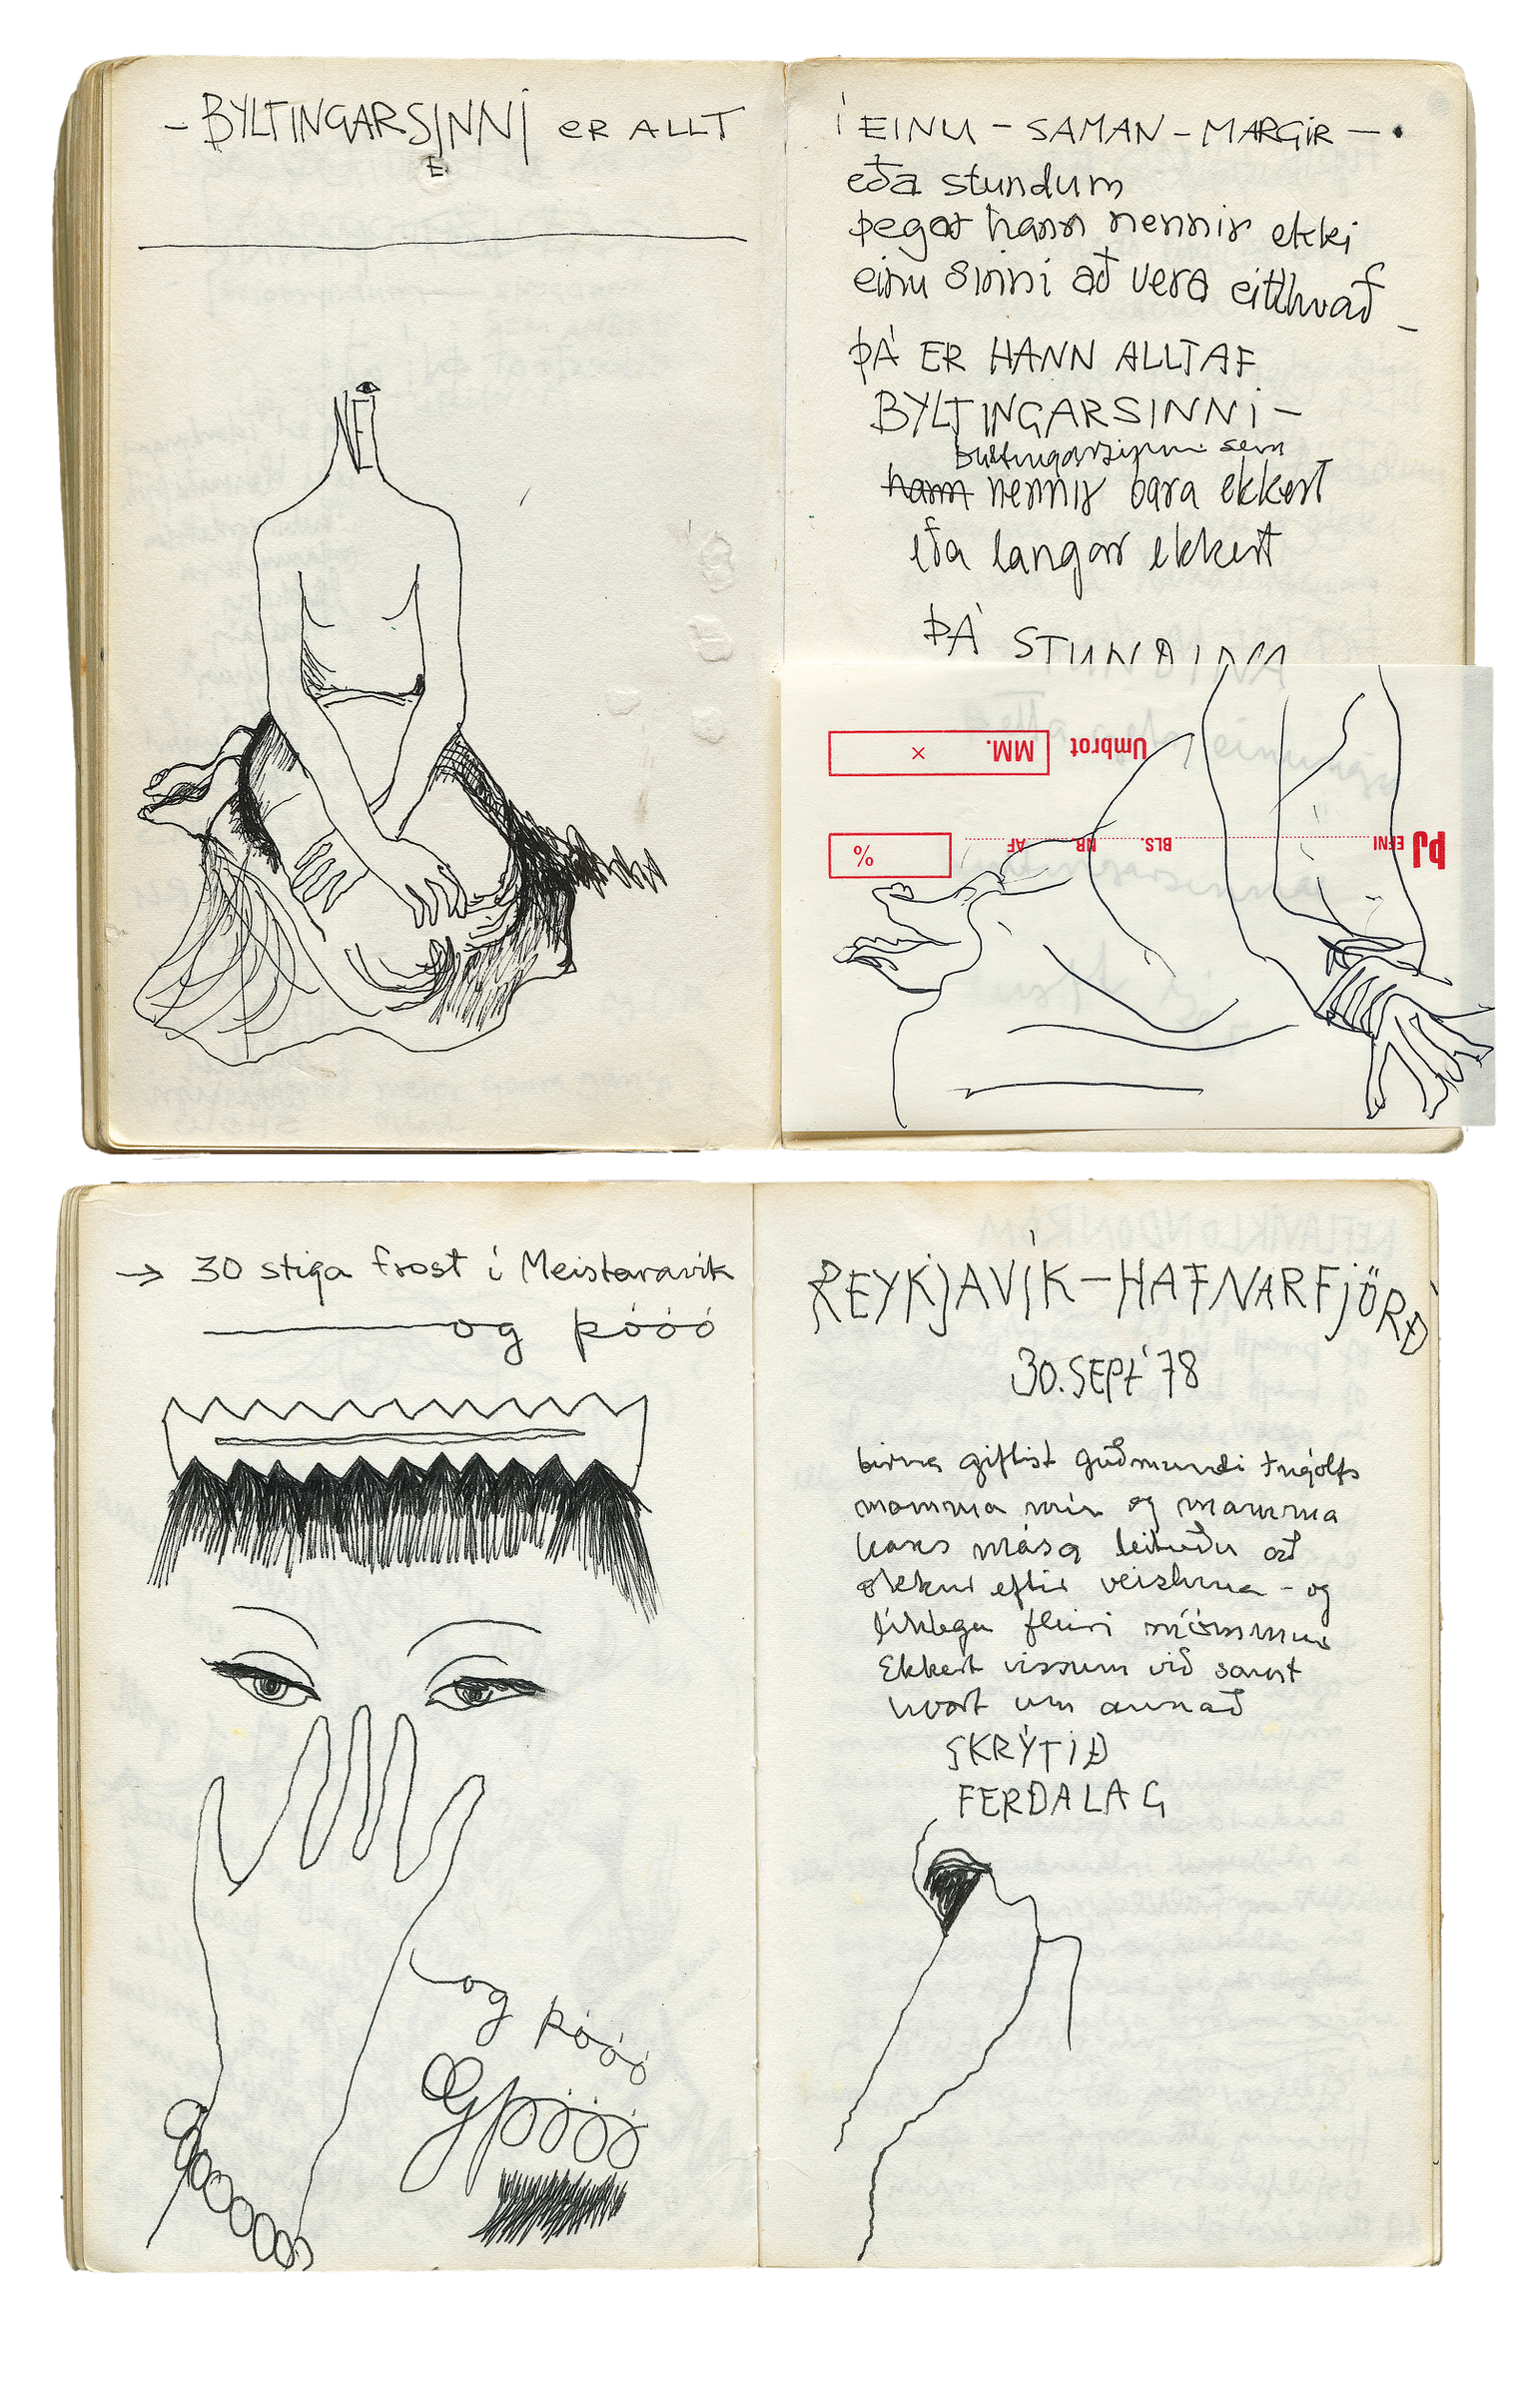 – BYLTINGARSINNI ER ALLT
E
NEI
Í EINU – SAMAN – MARGIR – •
eða stundum
þegar hann nennir ekki
einu sinni að vera eitthvað –
ÞÁ ER HANN ALLTAF
BYLTINGARSINNI –
byltingarsinni sem
hann nennir bara ekkert
eða langar ekkert
ÞÁ STUNDINA
Umbrot
MM.
×
þJ EFNI
BLS.
NR
AF
%
→ 30 stiga frost í Meistaravík
og þóóó
og þóóó
Og þóóó
REYKJAVÍK – HAFNARFJÖRÐ
30. SEPT '78
birna giftist guðmundi Ingólfs
mamma mín og mamma
hans mása leituðu að
okkur eftir veisluna – og
líklega fleiri mömmur
Ekkert vissum við samt
hvort um annað
SKRÝTIÐ
FERÐALAG